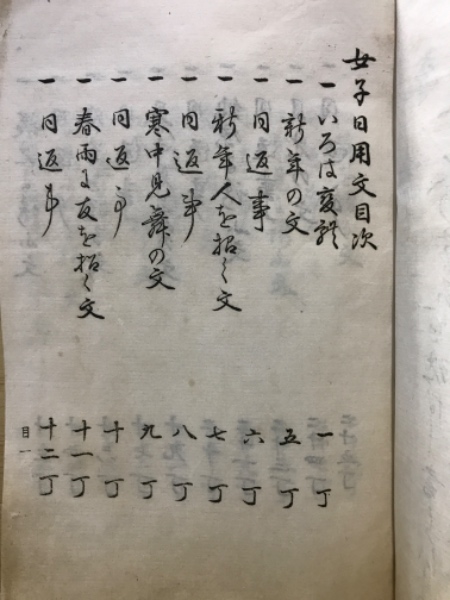 女子日用文目次
一 いろは変体 一丁
一 新年の文 五丁
一 同返事 六丁
一 新年人を招く文 七丁
一 同返事 八丁
一 寒中見舞の文 九丁
一 同返事 十丁
一 春雨に友を招く文 十一丁
一 同返事 十二丁
目一